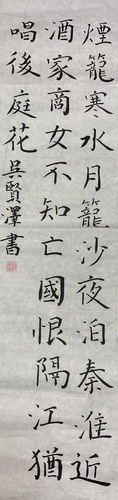 煙籠寒水月籠沙夜泊秦淮近
酒家商女不知亡國恨隔江猶
唱後庭花吳賢澤書